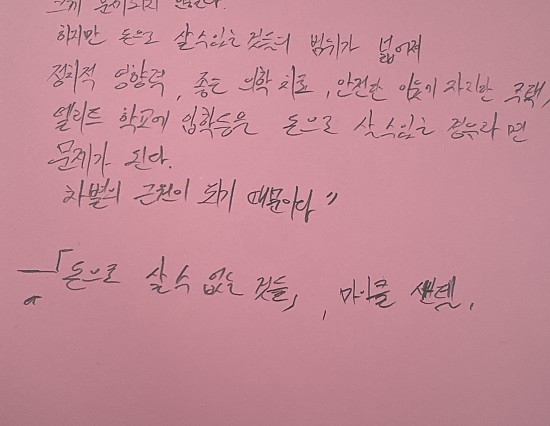 크게 문제되지 않는다.
하지만 돈으로 살 수 있는 것들의 범위가 넓어져
정치적 영향력, 좋은 의학 치료, 안전한 이웃이 자리한 주택,
엘리트 학교에 입학등을 돈으로 살 수 있는 경우라면
문제가 된다.
차별의 근원이 되기 때문이다"
—「돈으로 살 수 없는 것들」, 마이클 샌델.